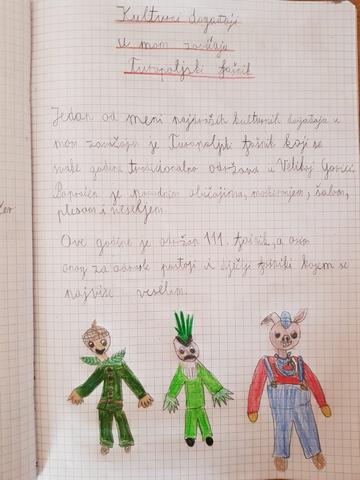 Kulturni događaji
u mom zavičaju
Turopoljski fašnik
Jedan od meni najdražih kulturnih događaja u
mom zavičaju je Turopoljski fašnik koji se
svake godine tradicionalno održava u Velikoj Gorici.
Popraćen je narodnim običajima, maskiranjem, šalom,
plesom i veseljem.
Ove godine je održan 111. fašnik, a osim
onog za odrasle postoji i dječji fašnik kojem se
najviše veselim.